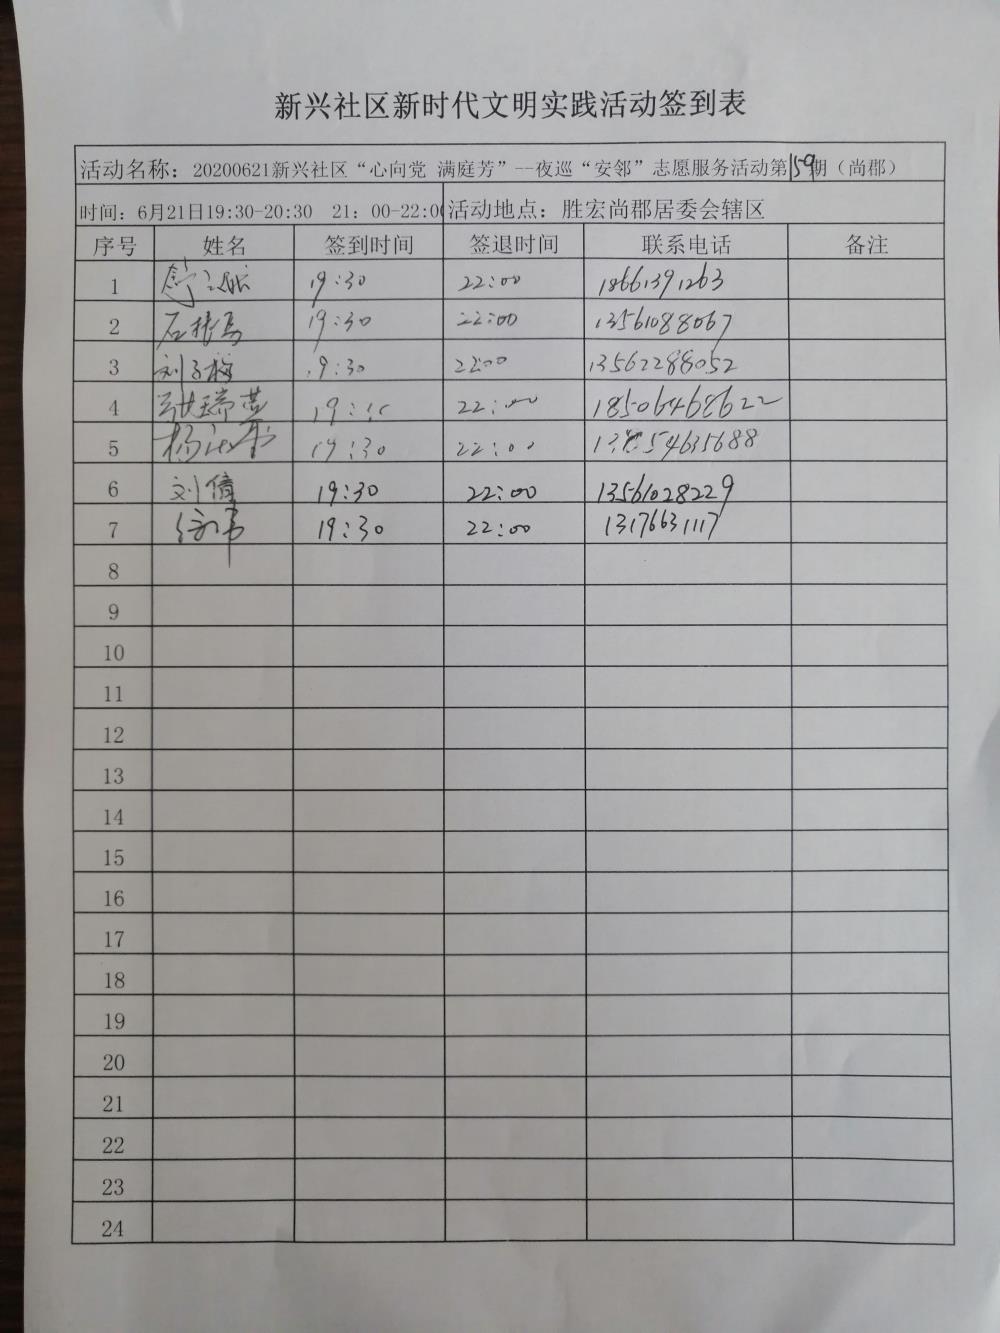 新兴社区新时代文明实践活动签到表
活动名称：20200621新兴社区“心向党 满庭芳”--夜巡“安邻”志愿服务活动第159期（尚郡）
时间：6月21日19:30-20:30 21：00-22:00 活动地点：胜宏尚郡居委会辖区
序号 姓名 签到时间 签退时间 联系电话 备注
1 19:30 22:00 18661391263
2 19:30 22:00 13561088067
3 刘子梅 19:30 22:00 13562288052
4 张瑞芸 22:00 18506468622
5 19:30 22:00
6 刘倩 19:30 22:00 13561028229
7 徐伟 19:30 22:00 13176631117
8
9
10
11
12
13
14
15
16
17
18
19
20
21
22
23
24